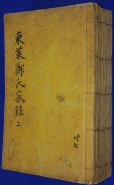 東萊鄭氏家錄 二